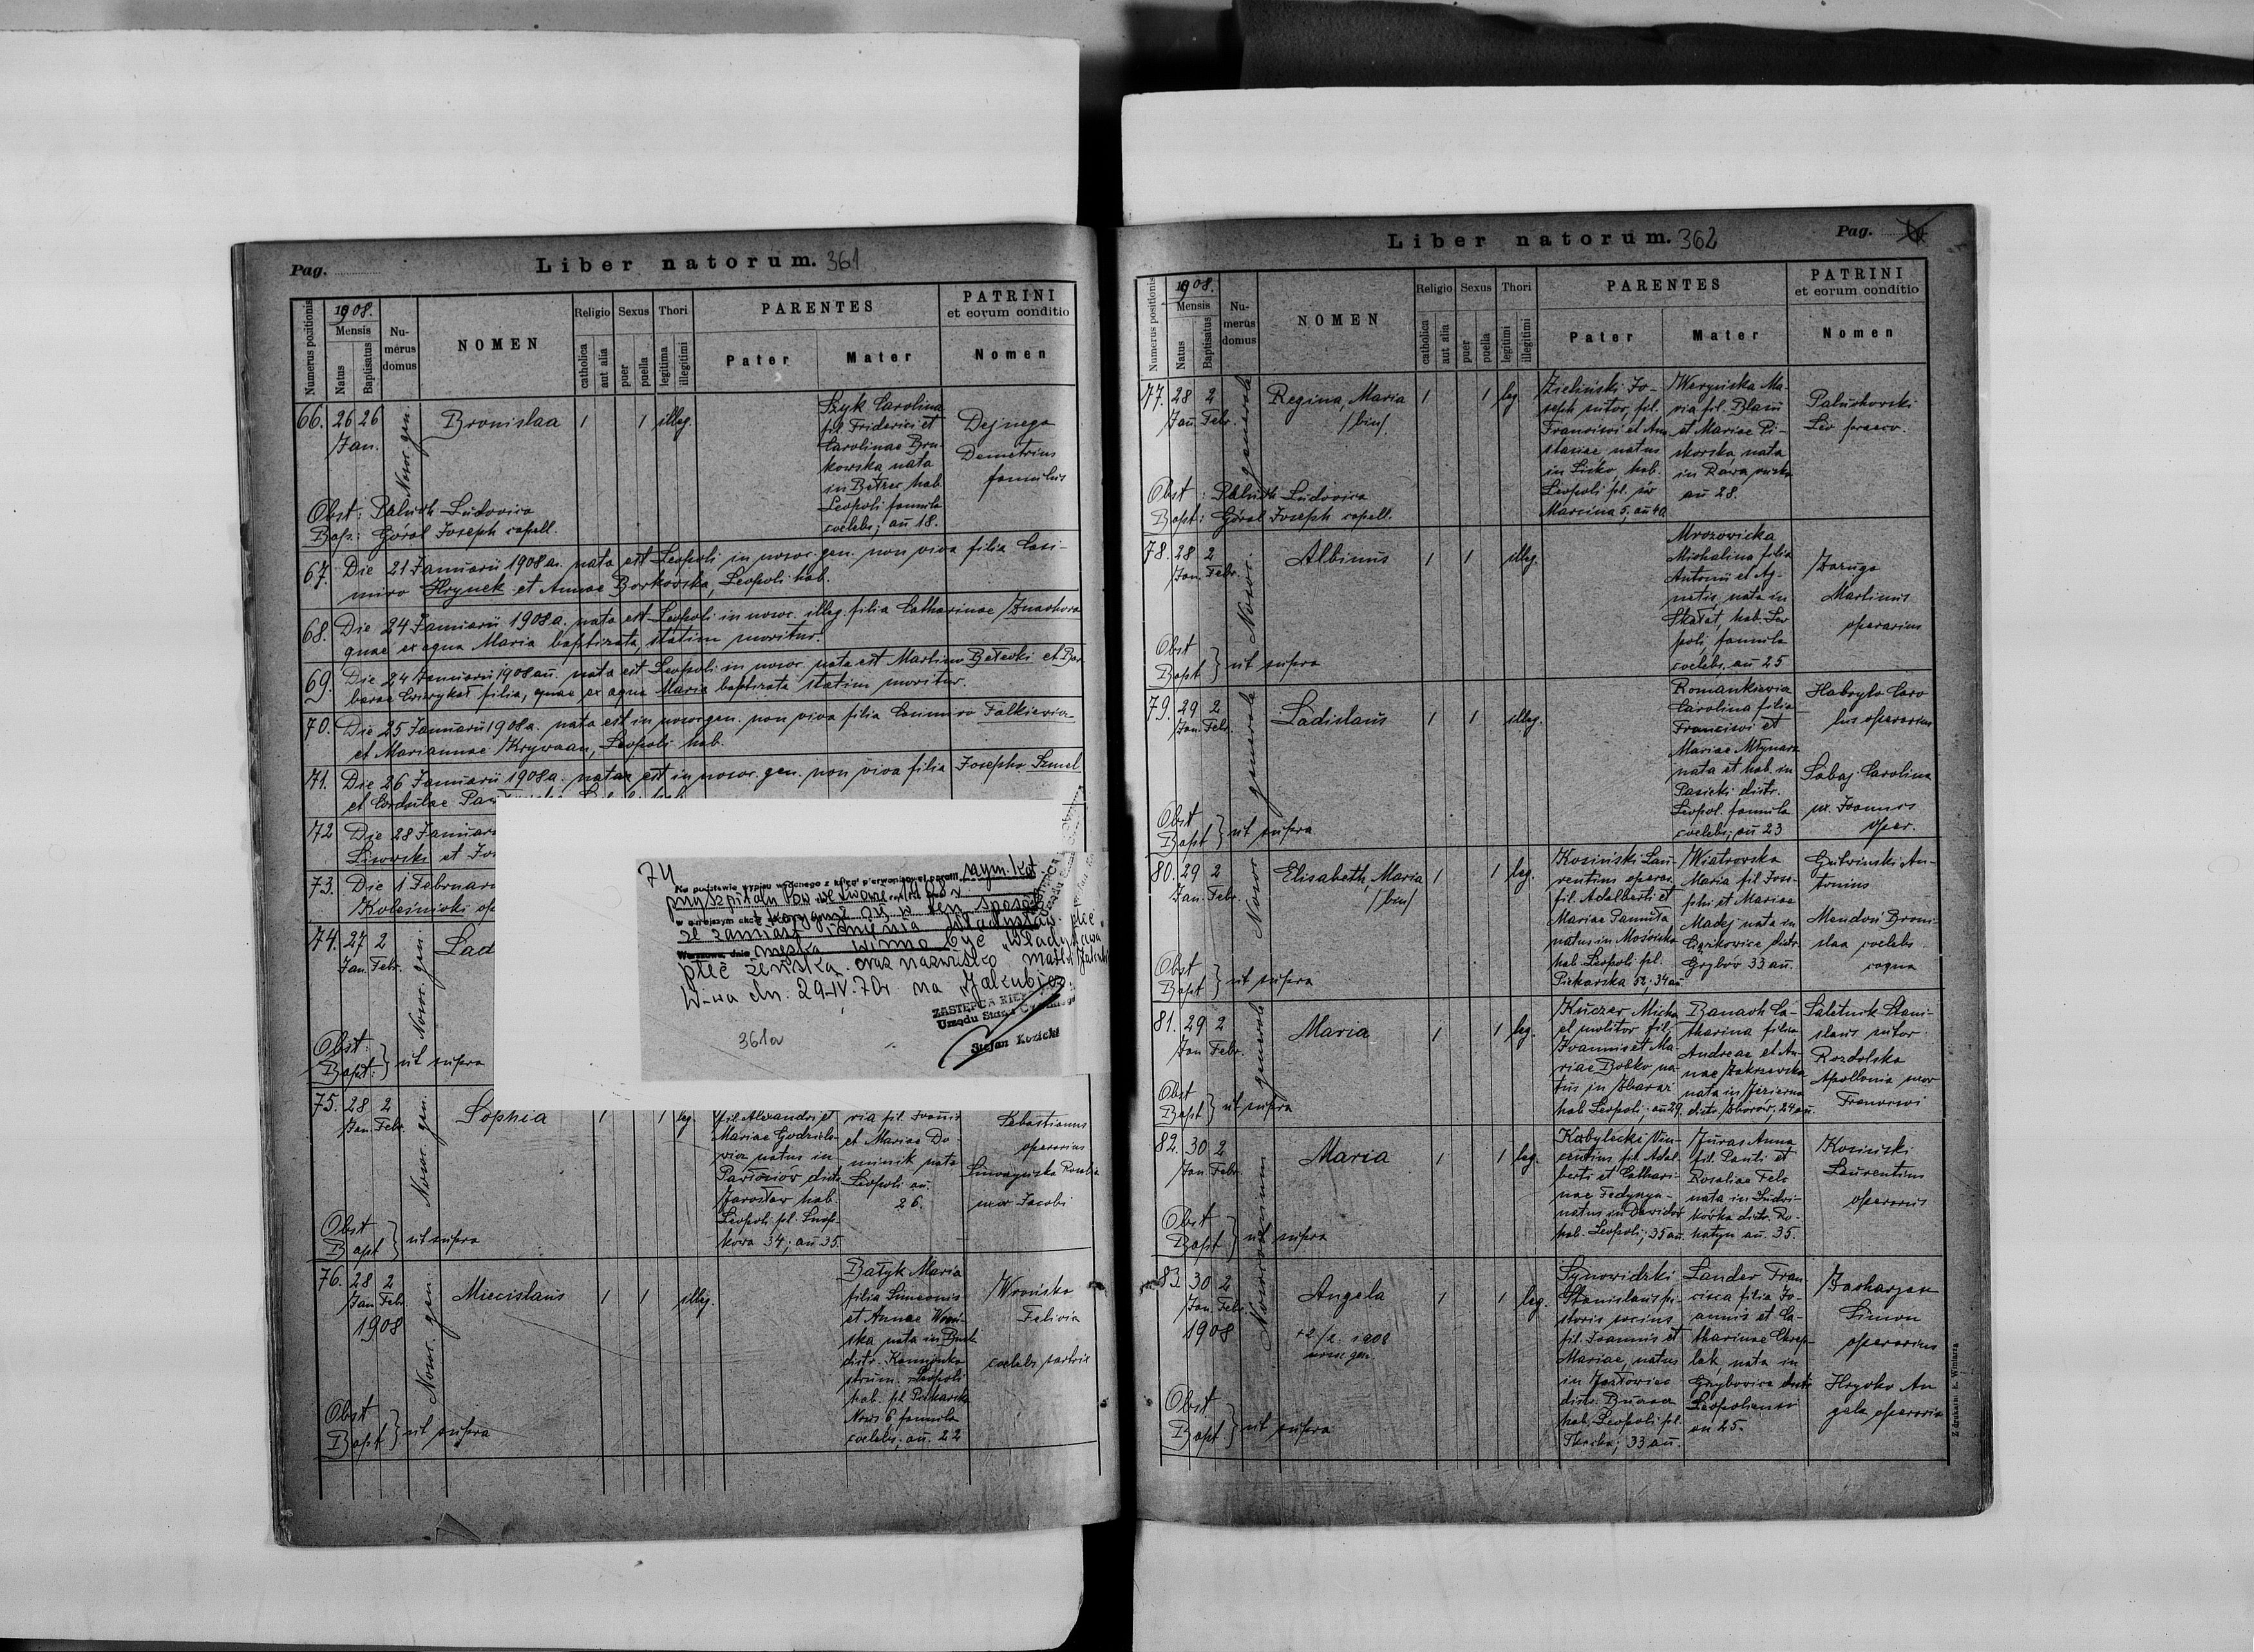 Pag.
Liber natorum. 361
Numerus positionis
1908.
Mensis
Natus
Baptisatus
Numerus domus
NOMEN
Religio
catholica
aut alia
Sexus
puer
puella
Thori
legitima
illegitimi
PARENTES
Pater
Mater
PATRINI
et eorum conditio
Nomen
66. 26 26 Bronislaa 1 1 illeg.
Jan.
Nosoc. gen.
Szyk Carolina
fil. Friderici et
Carolinae Bru-
kowska nata
in Bełzec hab.
Leopoli famula
coelebs; an 18.
Dejnega
Demetrius
famulus
Obst: Paluch Ludovica
Bap.: Góral Joseph capell.
67. Die 21 Januarii 1908 a. nata est Leopoli in nosoc. gen. non viva filia Casi-
miro Hrynek et Annae Borkowska, Leopoli hab.
68. Die 24 Januarii 1908 a. nata est Leopoli in nosoc. illeg. filia Catharinae
quae ex aqua Maria baptizata, statim moritur.
69. Die 24 Januarii 1908 an. nata est Leopoli in nosoc. nata est Martino et Bar-
barae filia, quae ex aqua Maria baptizata statim moritur.
70. Die 25 Januarii 1908 a. nata est in nosoc. gen. non viva filia Casimiro Falkiewicz
et Mariannae Leopoli hab.
71. Die 26 Januarii 1908 a. nata est in nosoc. gen. non viva filia Josepho Szmel
et Cordulae
72 Die 28 Januar
Lisowski et
73. Die 1 Februar
Koleśnicki
74. 27 2 Lad
Jan. Febr.
Nosoc. gen.
Obst:
Bapt: } ut supra
74
Na podstawie wypisu wydanego z księgi pierwopisowej parafii rzym. kat.
przy szpitalu Pow. we Lwowie 1908
w niniejszym akcie koryguje się w ten sposób
że zamiast imienia "Władysław" płeć
Warszawa, dnia męska winno być "Władysława"
płeć żeńska oraz nazwisko matki
W-wa dn. 29-IV. 70r. na "Jakubiec"
ZASTĘPCA
Urzędu Stanu Cywilnego
Stefan Kozicki
361a
75. 28 2 Sophia 1 1 leg.
Jan. Febr.
Nosoc. gen.
fil. Alexandri et
Mariae Godziele-
wicz natus in
Pawłosiów distr.
Jarosław hab.
Leopoli pl. Snop-
kowa 34; an 35.
ria fil. Joannis
et Mariae Do-
minik nata
Leopoli an.
26.
Sebastianus
operarius
Rosalia
uxor Jacobi
Obst
Bapt } ut supra
76. 28 2 Miecislaus 1 1 illeg.
Jan. Febr.
1908
Nosoc. gen.
Bałyk Maria
filia Simeonis
et Annae Wroń-
ska nata in
distr. Kamionka
strum. Leopoli
hab. pl. Piekarska
Nows 6 famula
coelebs, an. 22
Wrońska
Felicia
coelebs
Obst
Bapt } ut supra
Liber natorum. 362
Pag.
Numerus positionis
1908.
Mensis
Natus
Baptisatus
Numerus domus
NOMEN
Religio
catholica
aut alia
Sexus
puer
puella
Thori
legitimi
illegitimi
PARENTES
Pater
Mater
PATRINI
et eorum conditio
Nomen
77. 28 2 Regina, Maria 1 1 leg.
Jan. Febr. /bin/
generale
Zieliński Jo-
seph sutor, fil.
Francisci et Ana-
stasiae natus
in Lisko, hab.
Leopoli pl. św
Marcina 5; an 40
Weryńska Ma-
ria fil. Blasii
et Mariae Pi-
skorska nata
in Rawa ruska
an 28.
Paluchowski
Leo
Obst: Paluch Ludovica
Bapt: Góral Joseph capell.
78. 28 2 Albinus 1 1 illeg.
Jan. Febr.
Nosoc.
Mrozowicka
Michalina filia
Antonii et Ag-
netis, nata in
Skałat, hab. Leo-
poli, famula
coelebs, an 25
Zaruga
Martinus
operarius
Obst
Bapt } ut supra
79. 29 2 Ladislaus 1 1 illeg.
Jan. Febr.
generale
Romankiewicz
Carolina filia
Francisci et
Mariae Młynarz
nata et hab. in
Pasieki distr.
Leopol. famula
coelebs; an 23
Habryło Caro-
lus operarius
Sabaj Carolina
ux. Joannis
oper.
Obst
Bapt } ut supra
80. 29 2 Elisabeth, Maria 1 1 leg.
Jan. Febr. /bin/
Nosoc
Kosiński Lau-
rentius operar.
fil. Adalberti et
Mariae Pamuła
natus in Mościska
hab. Leopoli pl.
Piekarska 52; 34 an
Wiatrowska
Maria fil. Jose-
phi et Mariae
Madej nata in
distr.
Grybów 33 an.
Gutwinski An-
tonius
Mendoń Broni-
slaa coelebs
coqua
Obst
Bapt } ut supra
81. 29 2 Maria 1 1 leg.
Jan Febr.
generale
Kuczer Micha-
el molitor fil.
Joannis et Ma-
riae Bobko na-
tus in Zbaraż
hab. Leopoli; an 29.
Banach Ca-
tharina filia
Andreae et An-
nae Zakrzewska
nata in Jezierna
distr. Zborów; 24 an.
Saletnik Stani-
slaus sutor
Rozdolska
Apollonia uxor
Francisci
Obst
Bapt } ut supra
82. 30 2 Maria 1 1 leg.
Jan Febr.
Kobylecki Vin-
centius fil. Adal-
berti et Cathari-
nae
natus in Dawidów
hab. Leopoli; 35 an.
Juras Anna
fil. Pauli et
Rosaliae Felc
nata in Ludwi-
kówka distr. Ro-
hatyn an. 35.
Kosiński
Laurentius
operarius
Obst
Bapt } ut supra
83. 30 2 Angela 1 1 leg.
Jan. Febr.
1908 +2/2 1908
nosoc gen.
Nosocomium
Synowidzki
Stanislaus pi-
storis socius
fil. Joannis et
Mariae, natus
in Jazłowiec
distr. Buczacz
hab. Leopoli pl.
33 an.
Lander Fran-
cisca filia Jo-
annis et Ca-
tharinae
lak, nata in
Grzybowice distr.
Leopoliensi
an 25.
Zacharjasz
Simon
operarius
Hryćko An-
gela operaria
Obst
Bapt } ut supra
Z drukarni E. Winiarza